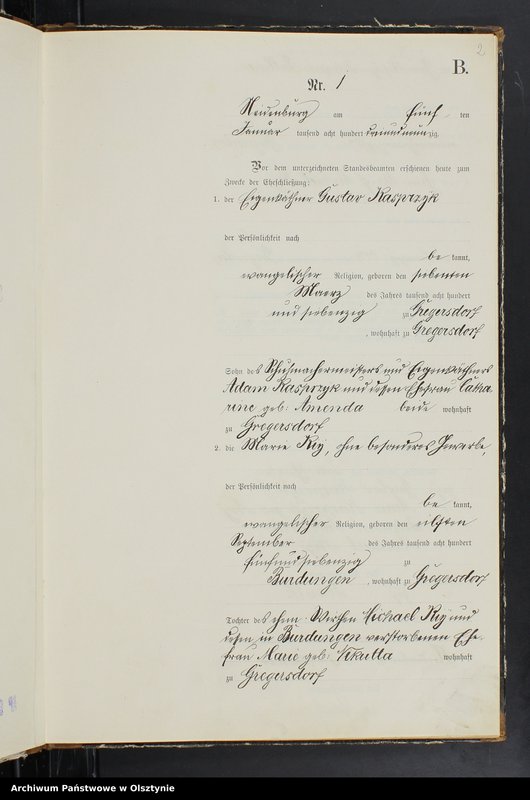 2
B.
Nr. 1
Neidenburg am fünf ten
Januar tausend acht hundert dreiundneunzig.
Vor dem unterzeichneten Standesbeamten erschienen heute zum
Zwecke der Eheschließung:
1. der Eigenkäthner Gustav Kasprzyk
der Persönlichkeit nach
be kannt,
evangelischer Religion, geboren den siebenten
Maerz des Jahres tausend acht hundert
und siebenzig zu Gregersdorf
, wohnhaft zu Gregersdorf
Sohn des Schuhmachermeisters und Eigenkäthners
Adam Kasprzyk und dessen Ehefrau Catha
rine geb: Amenda beide wohnhaft
zu Gregersdorf
2. die Marie Rey, ohne besonderes Gewerbe,
der Persönlichkeit nach
be kannt,
evangelischer Religion, geboren den elften
September des Jahres tausend acht hundert
fünfundsiebenzig zu
Burdungen, wohnhaft zu Gregersdorf
Tochter des ehem. Wirthen Michael Rey und
dessen in Burdungen verstorbenen Ehe-
frau Marie geb: wohnhaft
zu Gregersdorf
Archiwum Państwowe w Olsztynie